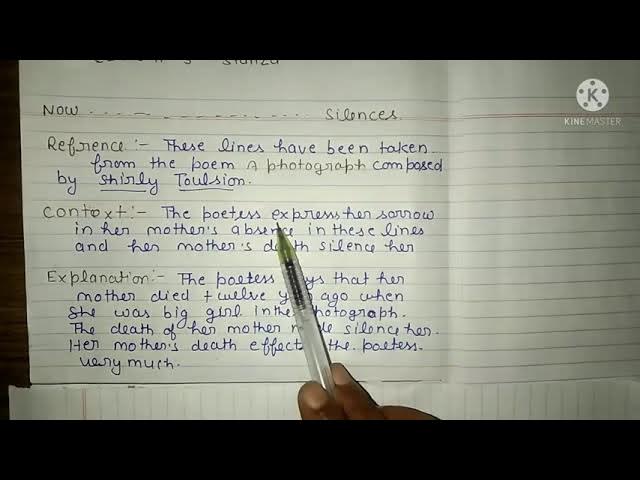 Stanza
Now ............ Silences.
KINEMASTER
Refrence :- These lines have been taken
from the poem A photograph composed
by Shirly Toulsion.
Context :- The poetess express her sorrow
in her mother's absence in these lines
and her mother's death silence her
Explanation :- The poetess says that her
mother died twelve year ago when
She was big girl in the photograph.
The death of her mother made silence her.
Her mother's death effect the poetess
very much.